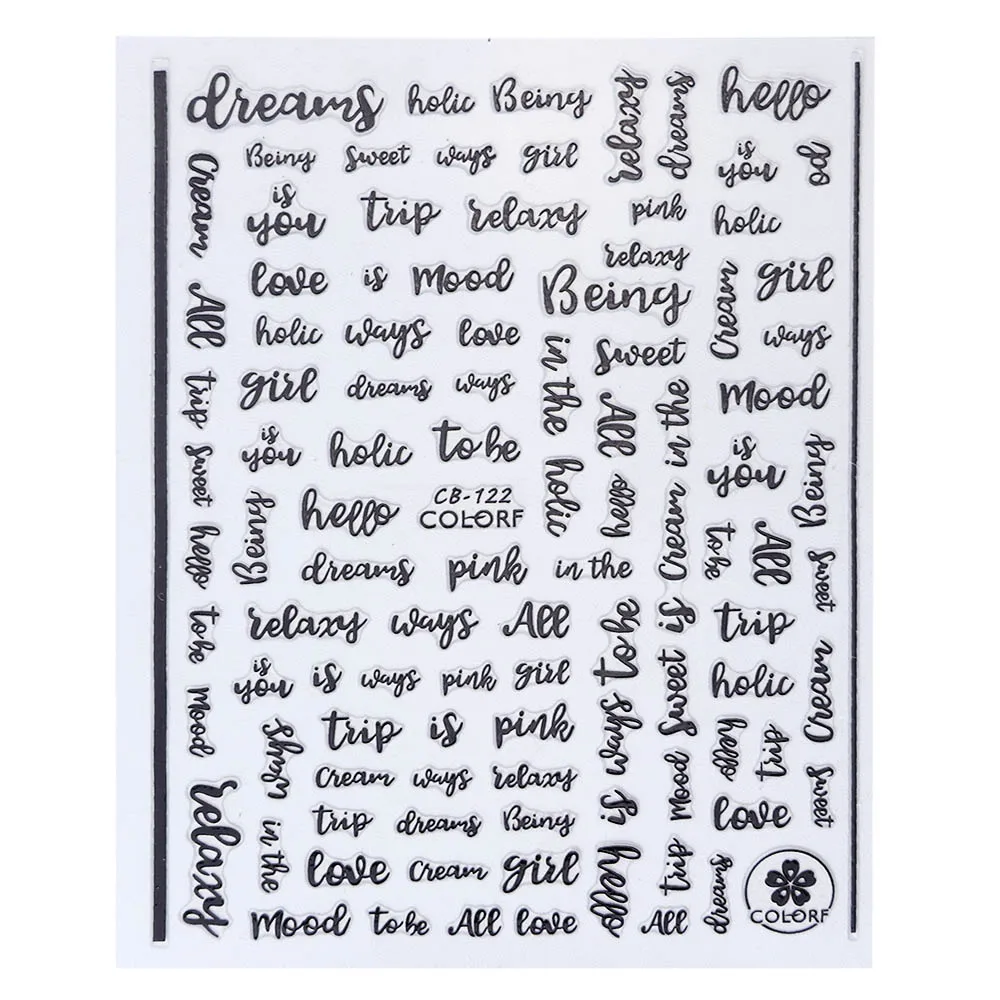 dreams holic Being relaxy dreams hello
Being Sweet ways girl is you od
Cream is you trip relaxy pink holic
relaxy
love is Mood Being Cream girl
All holic ways love in the Sweet ways
trip girl dreams ways All Cream in the Mood
Sweet is you holic to be holic hello is you Being
hello Being hello CB-122 to be All Sweet
COLORF
dreams pink in the
to be relaxy ways All ways to be Sweet is trip
Mood is you is ways pink girl holic Cream
ways trip is pink hello trip
Cream ways relaxy is Mood love Sweet
relaxy in the trip dreams Being trip
love Cream girl hello dreams
COLORF
Mood to be All love All